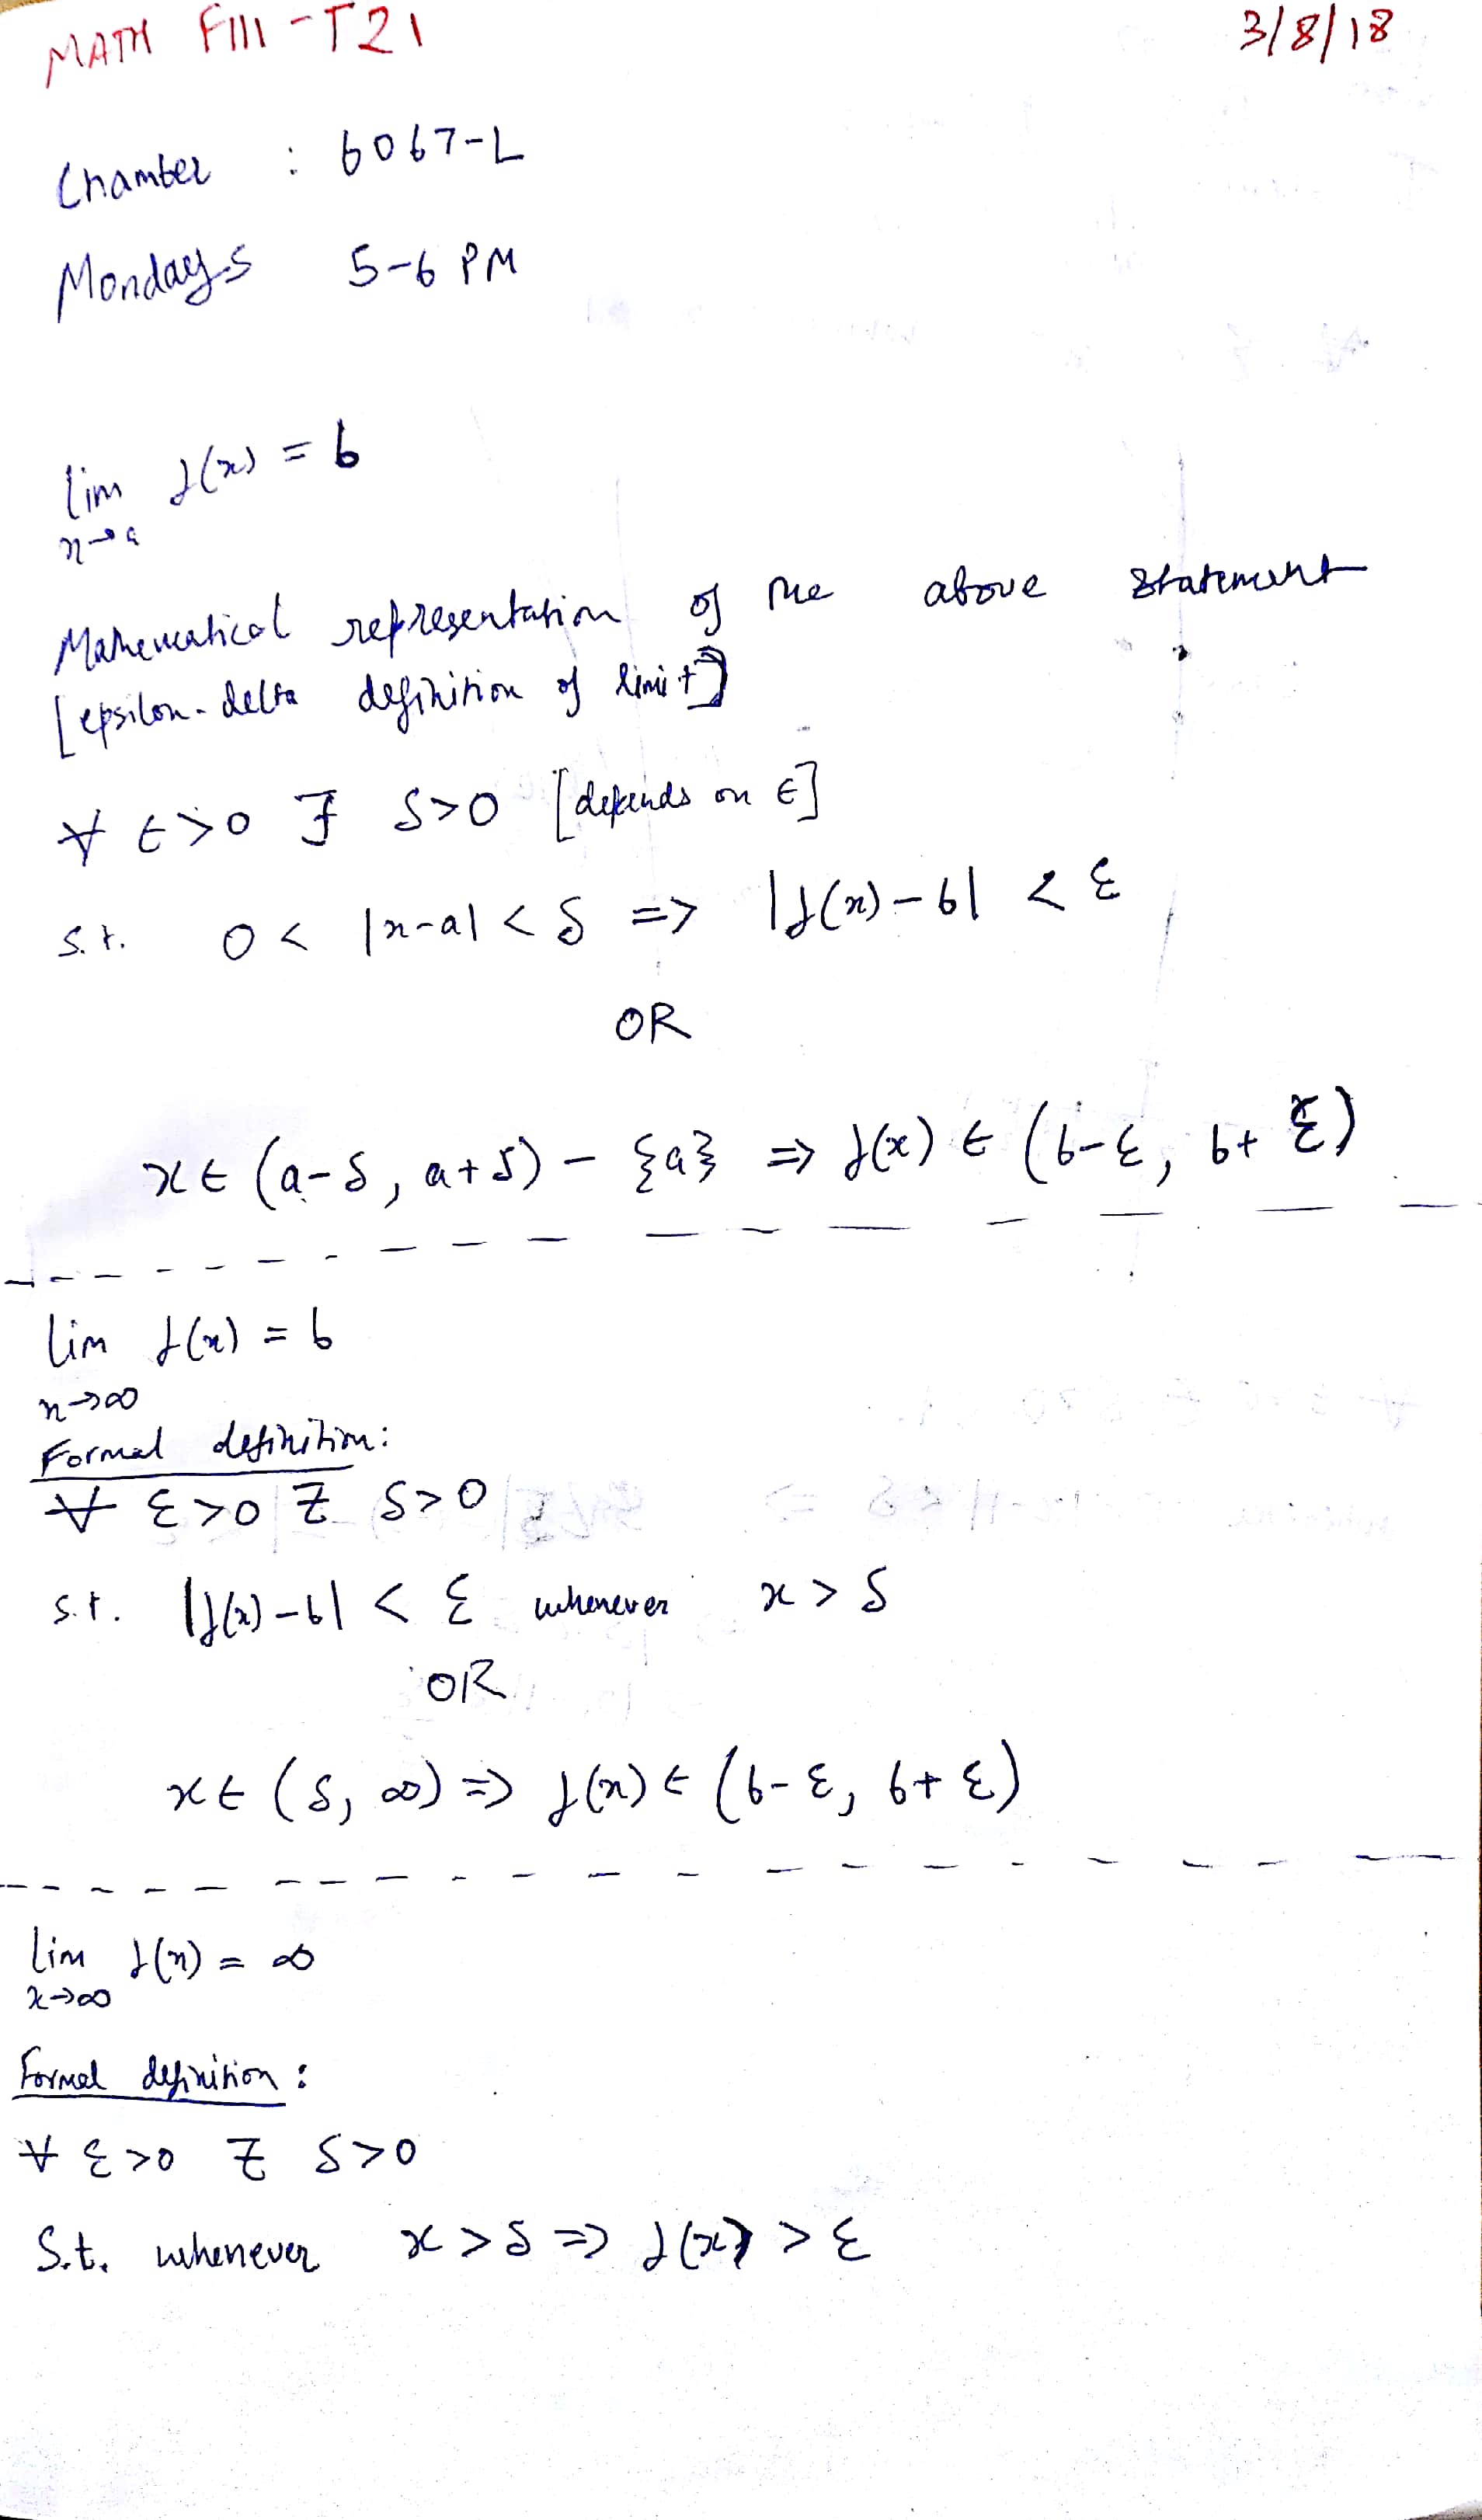 MATH F111-T21 3/8/18
Chamber : 6067-L
Mondays 5-6 PM
lim f(x) = b
x→a
Mathematical representation of the above statement
[epsilon-delta definition of limit]
∀ ϵ>0 ∃ δ>0 [depends on ϵ]
s.t. 0 < |x-a| < δ => |f(x)-b| < ε
OR
x∈ (a-δ, a+δ) - {a} => f(x) ∈ (b-ε, b+ε)
lim f(x) = b
x→∞
Formal definition:
∀ ε>0 ∃ δ>0
s.t. |f(x)-b| < ε whenever x > δ
OR
x∈ (δ, ∞) => f(x) ∈ (b-ε, b+ε)
lim f(x) = ∞
x→∞
Formal definition:
∀ ε>0 ∃ δ>0
S.t. whenever x > δ => f(x) > ε